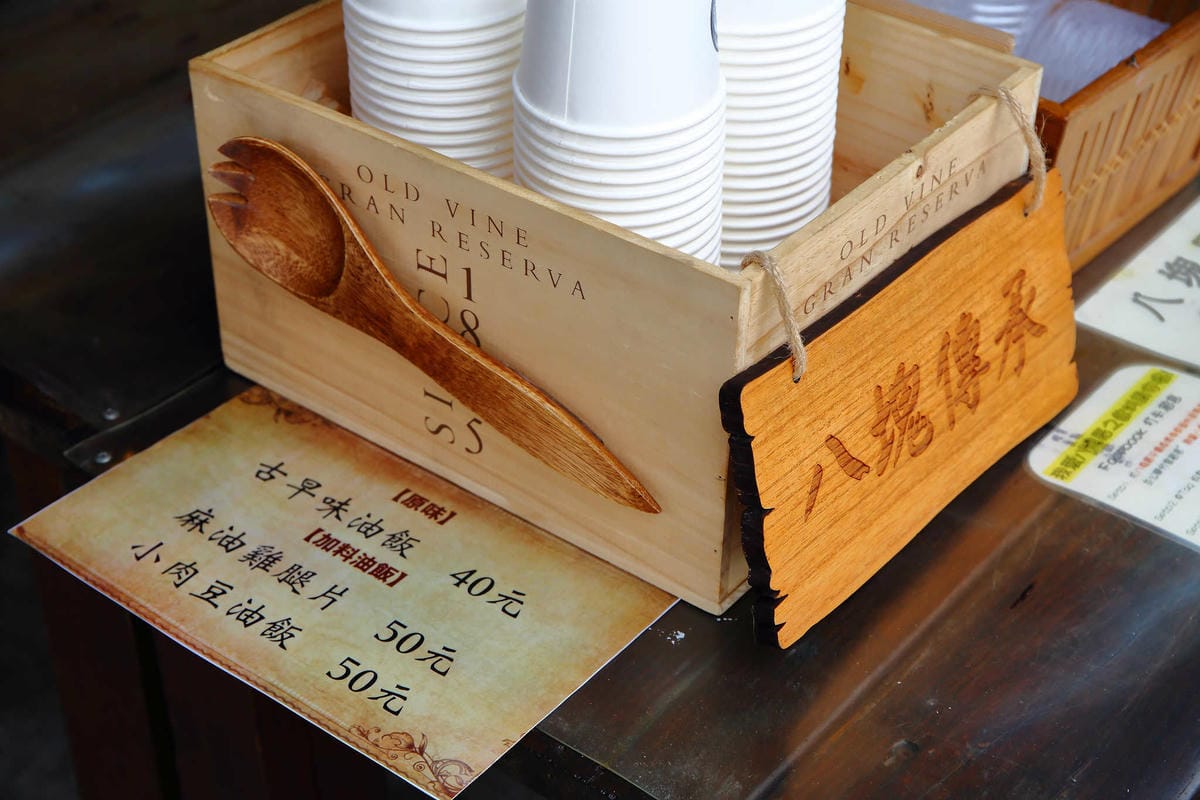 OLD VINE
GRAN RESERVA
SINCE
18
5
OLD VINE
GRAN RESERVA
八塊傳承
【原味】
古早味油飯 40元
【加料油飯】
麻油雞腿片 50元
小肉豆油飯 50元
八塊
Facebook 打卡